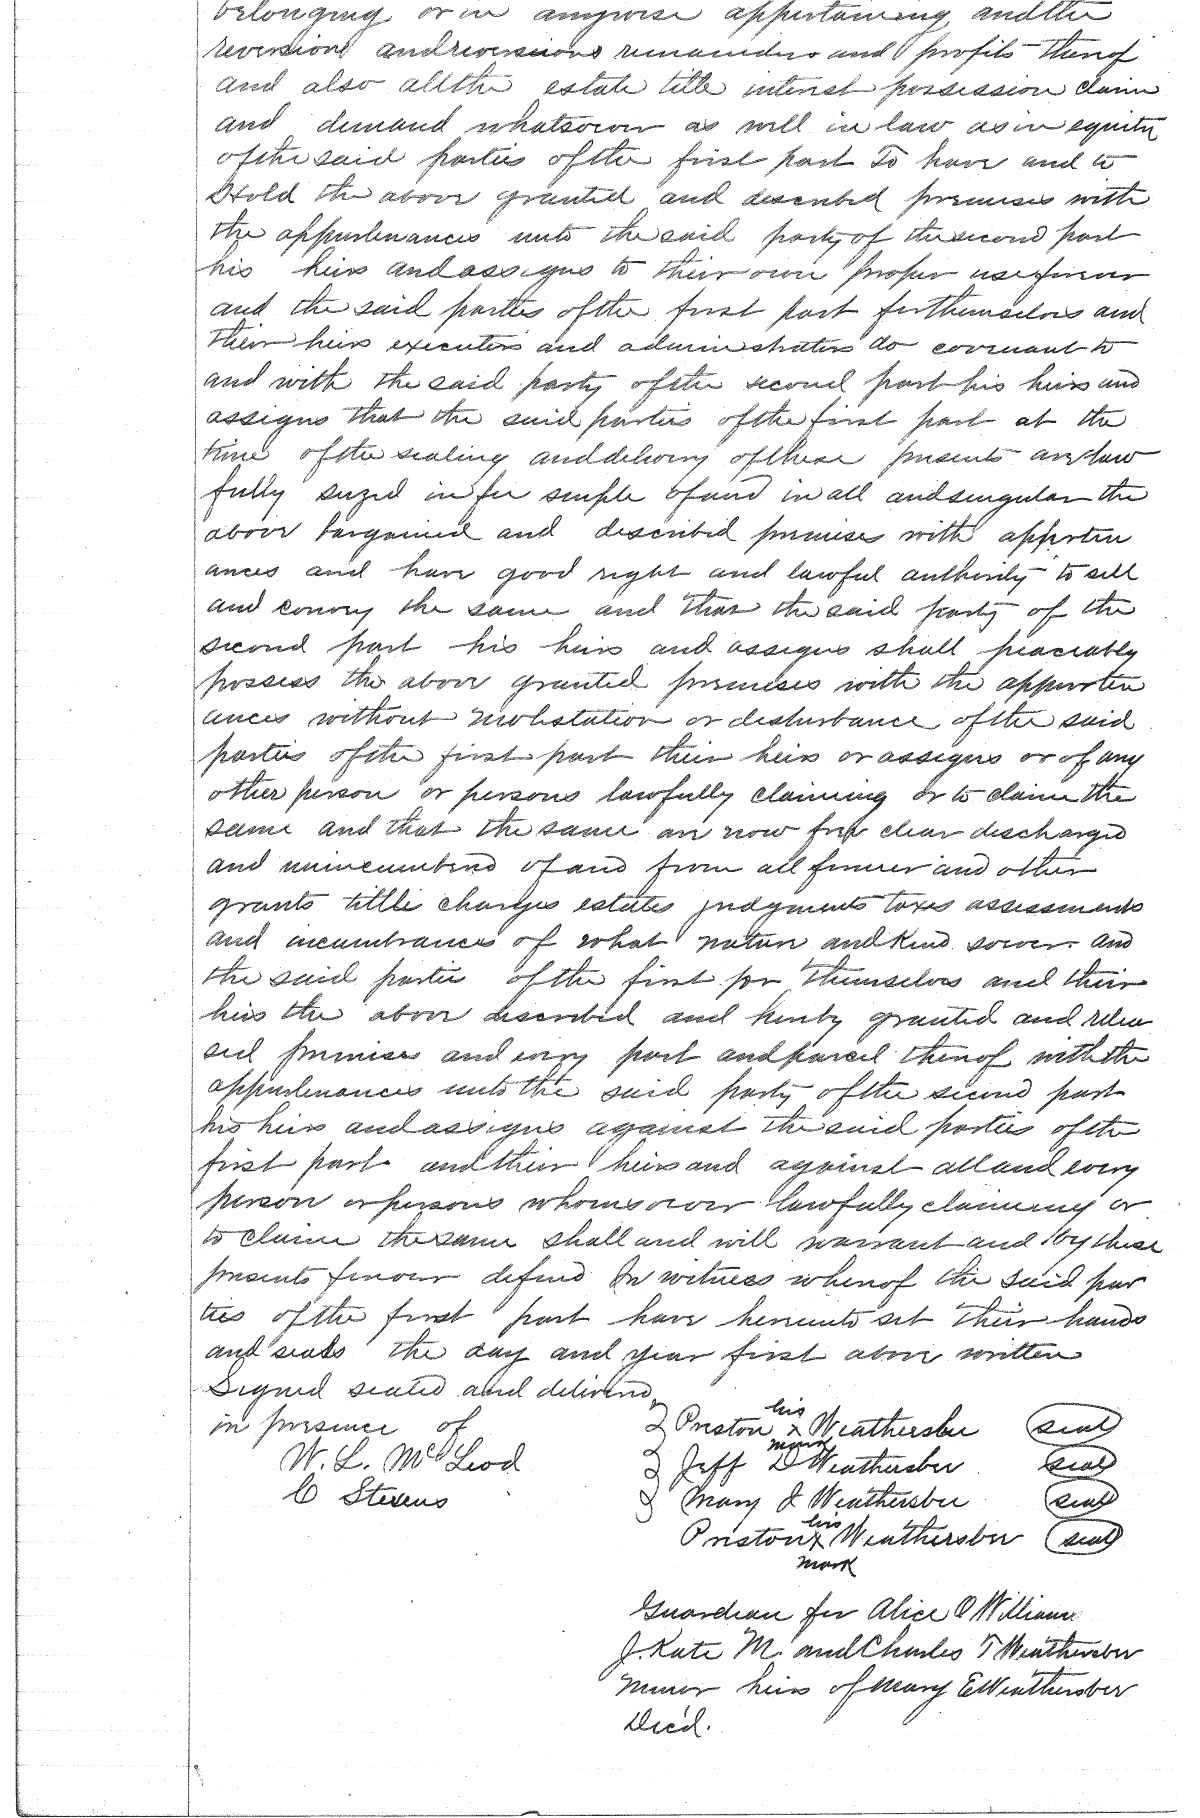 belonging or in anywise appertaining and the
reversion and reversions remainders and profits thereof
and also all the estate title interest possession claim
and demand whatsoever as well in law as in equity
of the said parties of the first part To have and to
Hold the above granted and described premises with
the appurtenances unto the said party of the second part
his heirs and assigns to their own proper use forever
and the said parties of the first part for themselves and
their heirs executors and administrators do covenant to
and with the said party of the second part his heirs and
assigns that the said parties of the first part at the
time of the sealing and delivery of these presents are law
fully seized in fee simple of and in all and singular the
above bargained and described premises with apperten
ances and have good right and lawful authority to sell
and convey the same and that the said party of the
second part his heirs and assigns shall peaceably
possess the above granted premises with the appurten
ances without molistation or disturbance of the said
parties of the first part their heirs or assigns or of any
other person or persons lawfully claiming or to claim the
same and that the same are now free clear discharged
and unincumbered of and from all former and other
grants title charges estates judgments taxes assessments
and incumbrances of what nature and kind soever And
the said parties of the first for themselves and their
heirs the above described and hereby granted and relea
sed premises and every part and parcel thereof with the
appurtenances unto the said party of the second part
his heirs and assigns against the said parties of the
first part and their heirs and against all and every
person or persons whomsoever lawfully claiming or
to claim the same shall and will warrant and by these
presents forever defend In witness whereof the said par
ties of the first part have hereunto set their hands
and seals the day and year first above written
Signed sealed and delivered
in presence of
W. L. McLeod
C Stevens
his
Preston x Weathersbee seal
mark
Jeff D Weathersbee seal
Mary J Weathersbee seal
his
Preston x Weathersbee seal
mark
Guardian for Alice O William
J. Kate M. and Charles T Weathersbee
Minor heirs of Mary E Weathersbee
Dec'd.